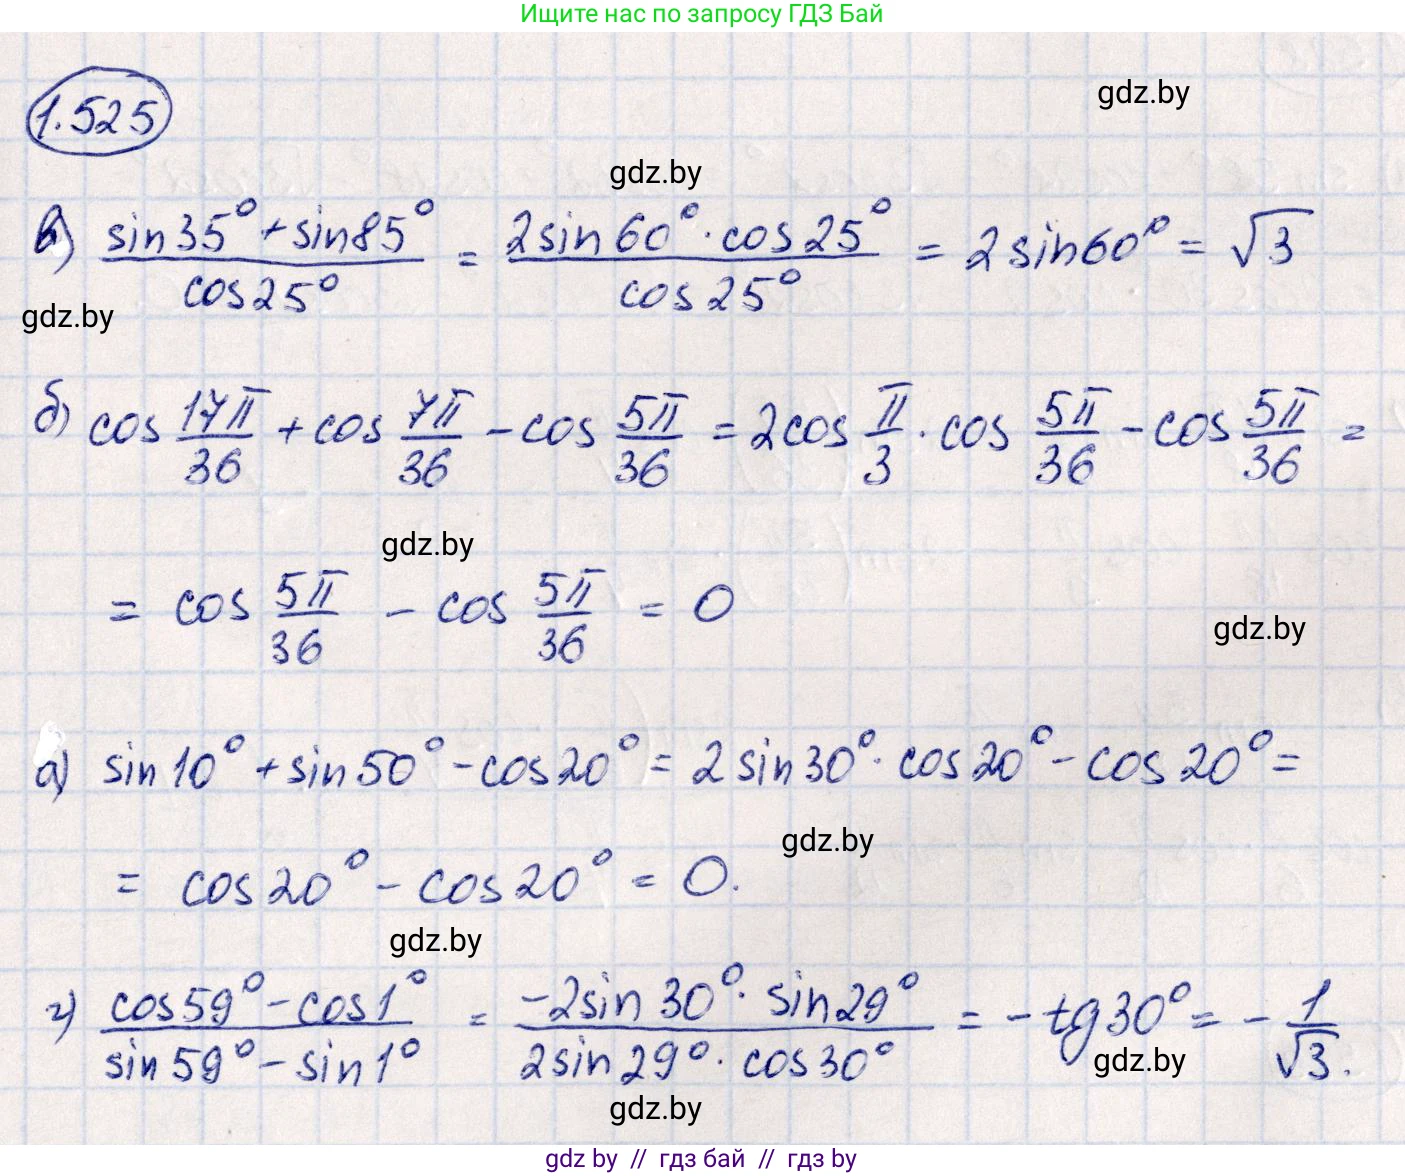 Ищите нас по запросу ГДЗ Бай
1.525
gdz.by
gdz.by
в) (sin35° + sin85°)/cos25° = (2sin60° · cos25°)/cos25° = 2sin60° = √3
gdz.by
б) cos 17π/36 + cos 7π/36 − cos 5π/36 = 2cos π/3 · cos 5π/36 − cos 5π/36 =
gdz.by
= cos 5π/36 − cos 5π/36 = 0
gdz.by
а) sin10° + sin50° − cos20° = 2sin30° · cos20° − cos20° =
gdz.by
= cos20° − cos20° = 0.
gdz.by
г) (cos59° − cos1°)/(sin59° − sin1°) = (−2sin30° · sin29°)/(2sin29° · cos30°) = −tg30° = −1/√3.
gdz.by
gdz.by
gdz by // гдз бай // гдз by